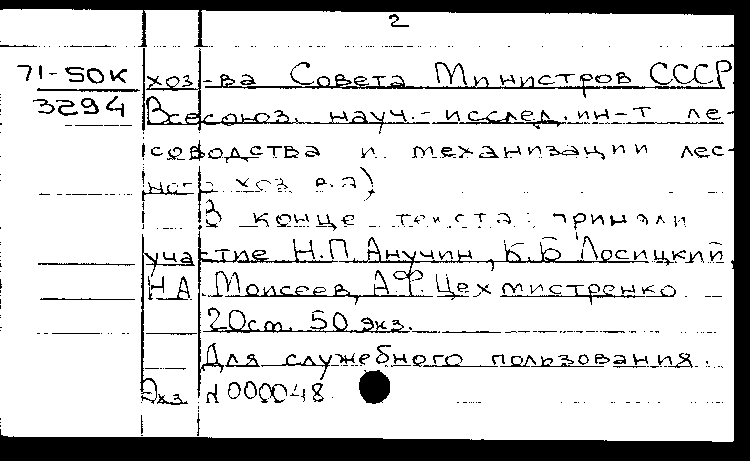 2
71-50К хоз-ва Совета Министров СССР.
3294 Всесоюз. науч.-исслед. ин-т ле-
соводства и механизации лес-
ного хоз-ва)
В конце текста: приняли
участие Н.П.Анучин, К.Б Лосицкий,
Н А Моисеев, А.Ф.Цехмистренко
20ст. 50 экз.
Для служебного пользования.
Экз N 000048